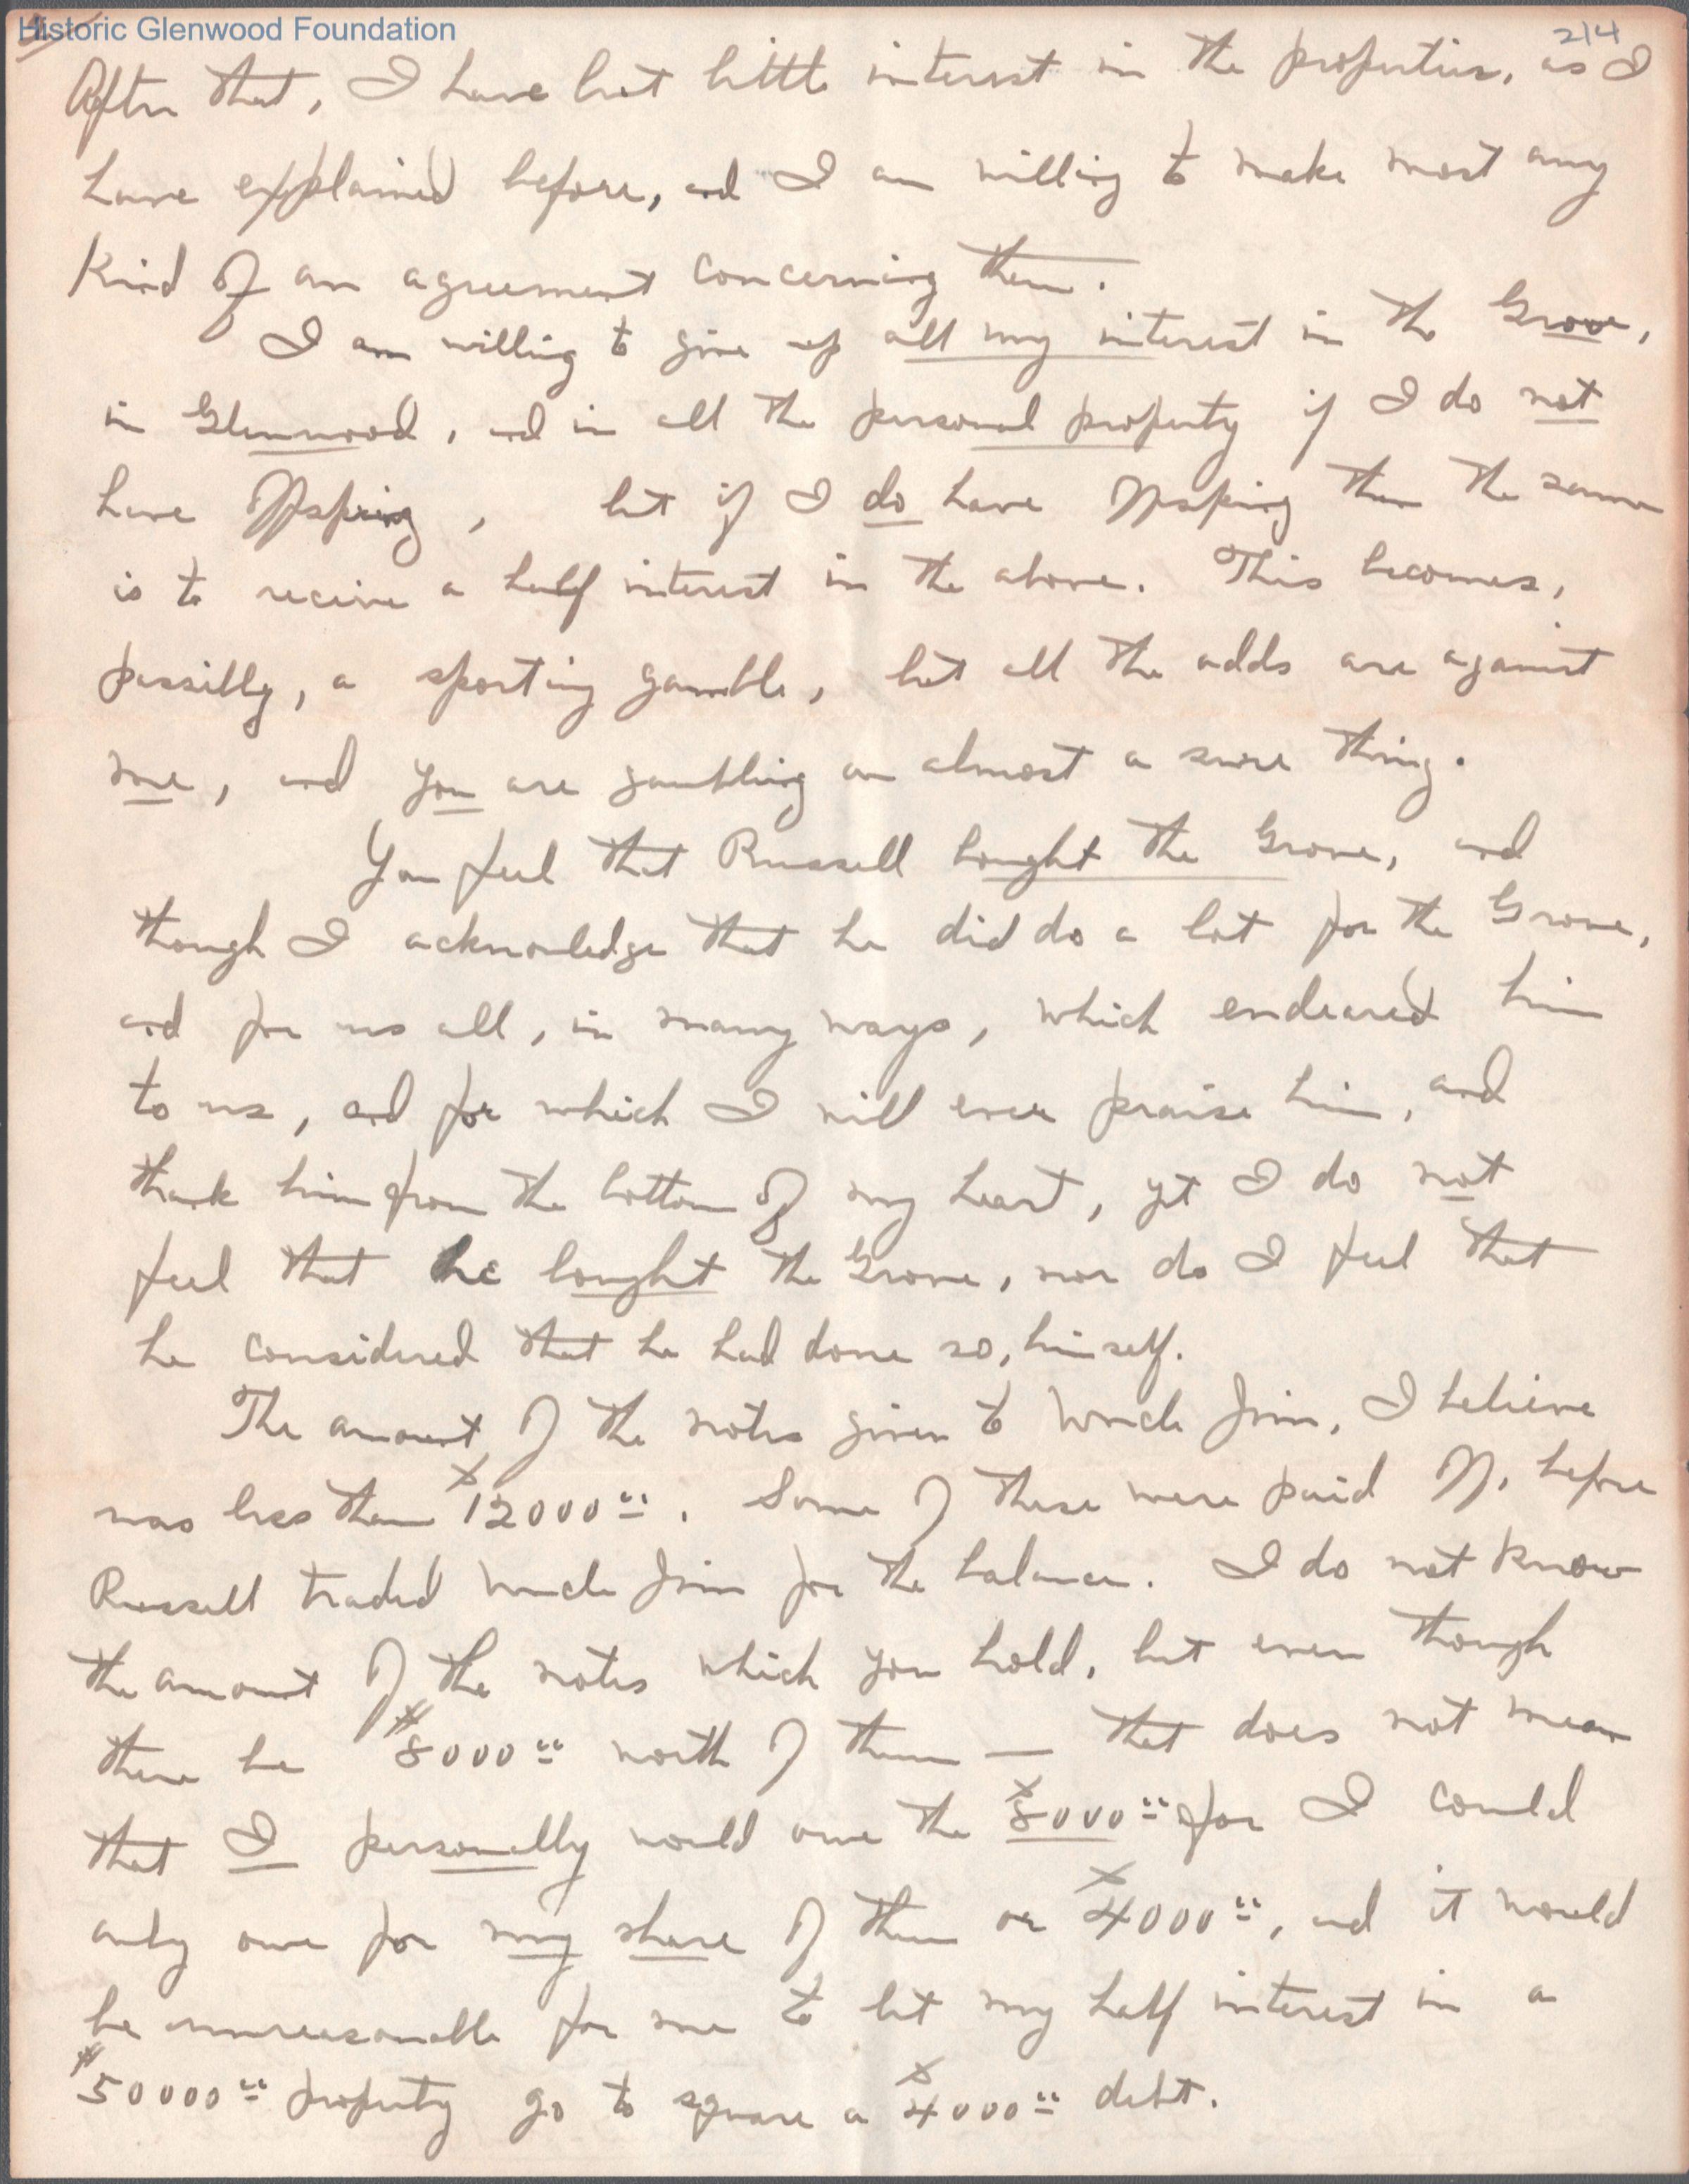 Historic Glenwood Foundation
214
After that, I have but little interest in the properties, as I
have explained before, and I am willing to make most any
Kind of an agreement concerning them.
I am willing to give up all my interest in the Grove,
in Glennwood, and in all the personal property if I do not
have offspring, but if I do have offspring then the same
is to receive a half interest in the above. This becomes,
possibly, a sporting gamble, but all the odds are against
me, and you are gambling on almost a sure thing.
You feel that Russell bought the Grove, and
though I acknowledge that he did do a lot for the Grove,
and for us all, in many ways, which endeared him
to us, and for which I will ever praise him, and
thank him from the bottom of my heart, yet I do not
feel that he bought the Grove, nor do I feel that
he considered that he had done so, himself.
The amount of the notes given to Uncle Jim, I believe
was less than $12000.00. Some of these were paid off, before
Russell traded Uncle Jim for the balance. I do not know
the amount of the notes which you hold, but even though
there be $8000.00 worth of them — that does not mean
that I personally would owe the $8000.00 for I could
only owe for my share of them or $4000.00, and it would
be unreasonable for me to let my half interest in a
$50000.00 property go to square a $4000.00 debt.